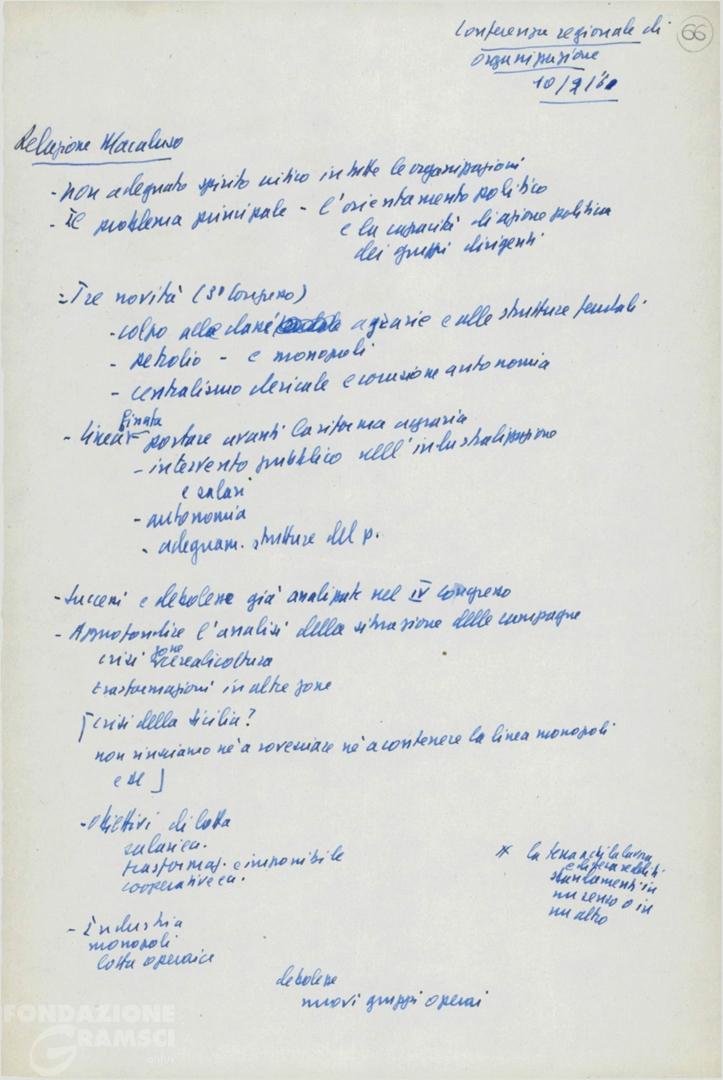 Conferenza regionale di
organizzazione
66
10/9/60
Relazione Macaluso
- non adeguato spirito critico in tutte le organizzazioni
- Il problema principale - l'orientamento politico
e la capacità di azione politica
dei gruppi dirigenti
= Tre novità (3° Congresso)
- colpo alla classe agrarie e alle strutture feudali
- petrolio - e monopoli
- centralismo clericale e corrosione autonomia
- linea fissata - portare avanti la riforma agraria
- intervento pubblico nell'industralizzazione
e salari
- autonomia
- adeguam. strutture del p.
- Successi e debolezze già analizzate nel IV Congresso
- Approfondire l'analisi della situazione delle campagne
crisi zone cerealicoltura
trasformazioni in altre zone
[crisi della Sicilia?
non riusciamo né a rovesciare né a contenere la linea monopoli
e]
- Obiettivi di lotta
salariea.
trasformaz. e imponibile
cooperative ca.
* la terra a chi la lavora
slittamenti in
un senso o in
un altro
- Industria
monopoli
lotta operaia
debolezze
nuovi gruppi operai
FONDAZIONE
GRAMSCI